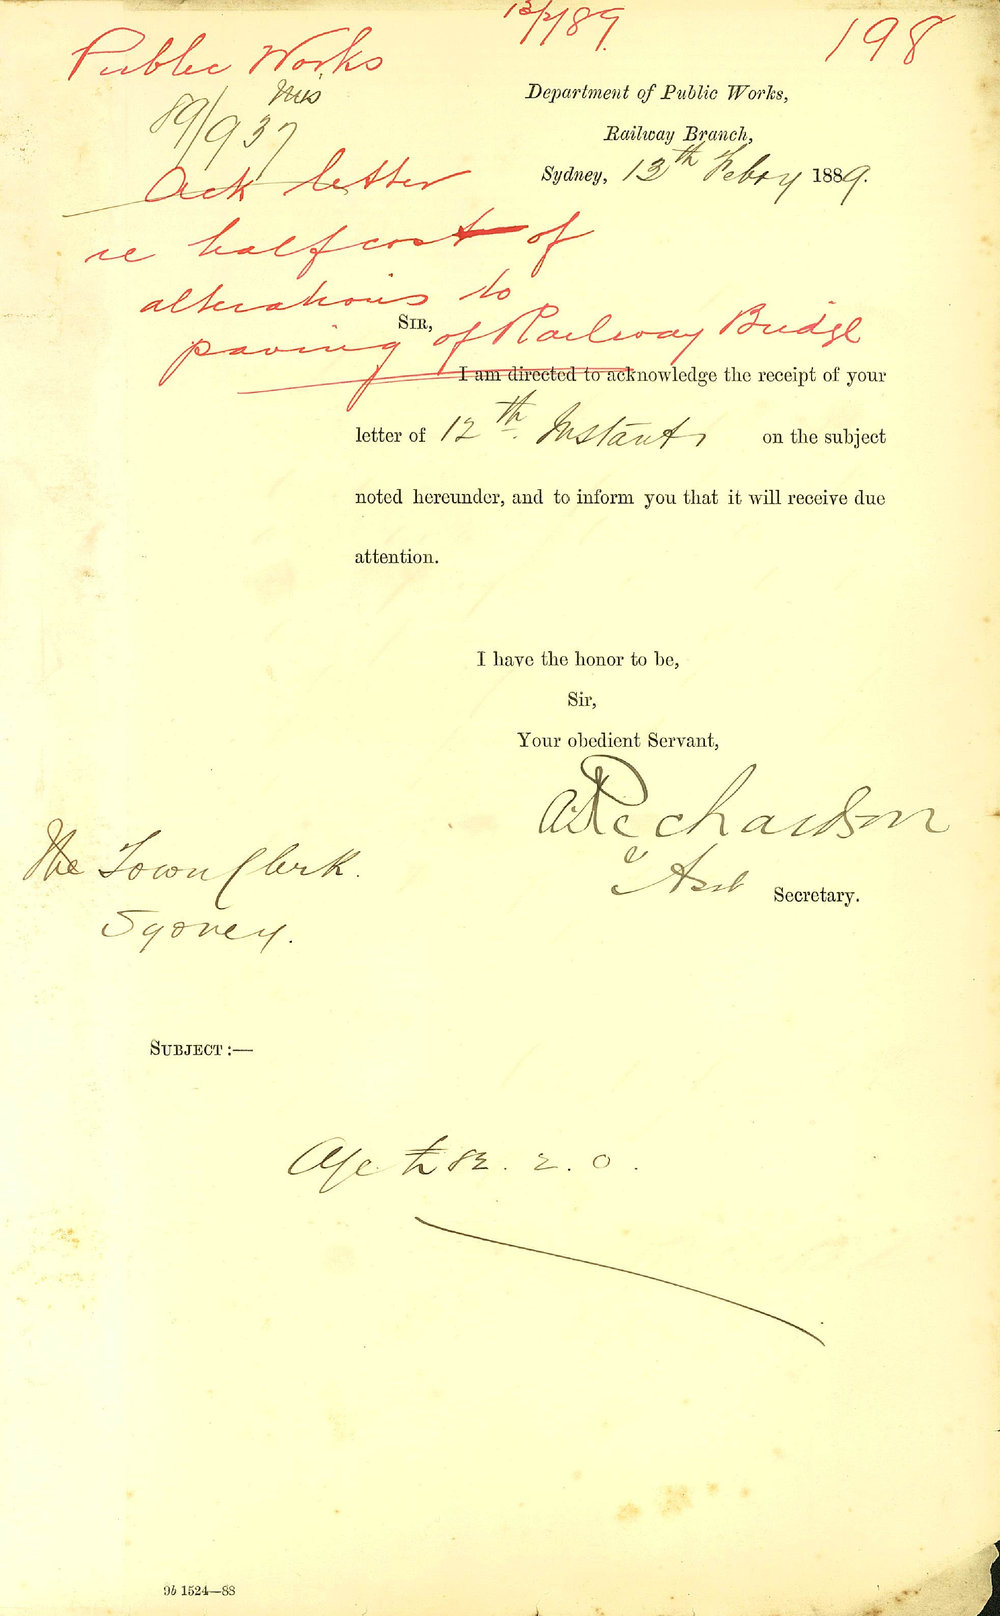 13/2/89
198
Public Works
Mis
89/937
Department of Public Works,
Railway Branch,
Sydney, 13th Febry 1889.
Ack letter
re half cost of
alterations to
paving of Railway Bridge
SIR,
I am directed to acknowledge the receipt of your
letter of 12th. Instant, on the subject
noted hereunder, and to inform you that it will receive due
attention.
I have the honor to be,
Sir,
Your obedient Servant,
Richardson
Asst Secretary.
The Town Clerk.
Sydney.
SUBJECT :—
82. 2. 0.
9b 1524—88